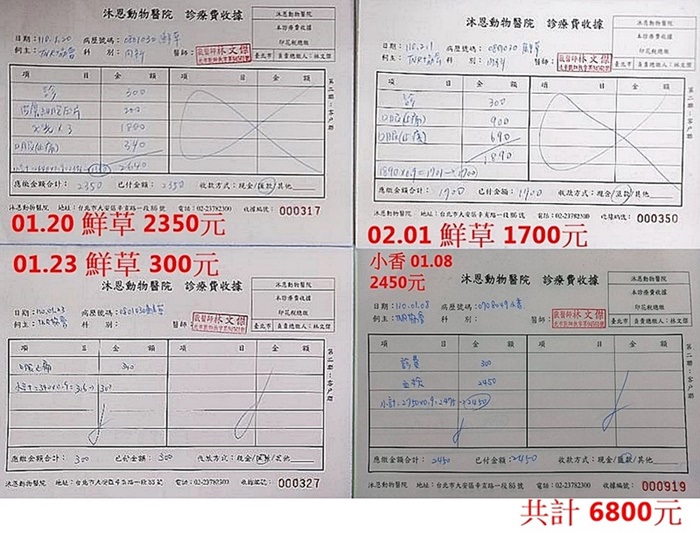 沐恩動物醫院 診療費收據
沐恩動物醫院
本診療費收據
印花稅總繳
臺北市 負責總繳人：林文傑
日期：110.1.20 病歷號碼：0801030 鮮草
飼主：TNR協會 科 別：內科 醫師：
獸醫師 林文傑
項 目 金 額 項 目 金 額
診 300
200
X光 x 3 1800
口服(止痛) 340
2640
應繳金額合計：2350 已付金額：2350 收款方式：現金/匯款/其他
沐恩動物醫院 地址：台北市大安區辛亥路一段86號 電話：02-23782300 收據編號：000317
01.20 鮮草 2350元
沐恩動物醫院 診療費收據
沐恩動物醫院
本診療費收據
印花稅總繳
臺北市 負責總繳人：林文傑
日期：110.2.1 病歷號碼：0801030 鮮草
飼主：TNR協會 科 別：內科 醫師：
獸醫師 林文傑
項 目 金 額 項 目 金 額
診 300
口服(止痛) 900
690
1890
1890x0.9=1701→1700
應繳金額合計：1700 已付金額：1700 收款方式：現金/匯款/其他
沐恩動物醫院 地址：台北市大安區辛亥路一段86號 電話：02-23782300 收據編號：000350
02.01 鮮草 1700元
01.23 鮮草 300元
沐恩動物醫院 診療費收據
沐恩動物醫院
本診療費收據
印花稅總繳
臺北市 負責總繳人：林文傑
日期：110.01.23 病歷號碼：0801030 鮮草
飼主：TNR協會 科 別： 醫師：
獸醫師 林文傑
項 目 金 額 項 目 金 額
應繳金額合計：300 已付金額：300 收款方式：現金/匯款/其他
沐恩動物醫院 地址：台北市大安區辛亥路一段86號 電話：02-23782300 收據編號：000327
小香 01.08
2450元
沐恩動物醫院 診療費收據
沐恩動物醫院
本診療費收據
印花稅總繳
臺北市 負責總繳人：林文傑
日期：110.01.08 病歷號碼：小香
飼主：TNR協會 科 別： 醫師：
獸醫師 林文傑
項 目 金 額 項 目 金 額
診費 300
血檢 2450
小計=2750x0.9=2475→2450
應繳金額合計：2450 已付金額：2450 收款方式：現金/匯款/其他
沐恩動物醫院 地址：台北市大安區辛亥路一段86號 電話：02-23782300 收據編號：000919
共計 6800元